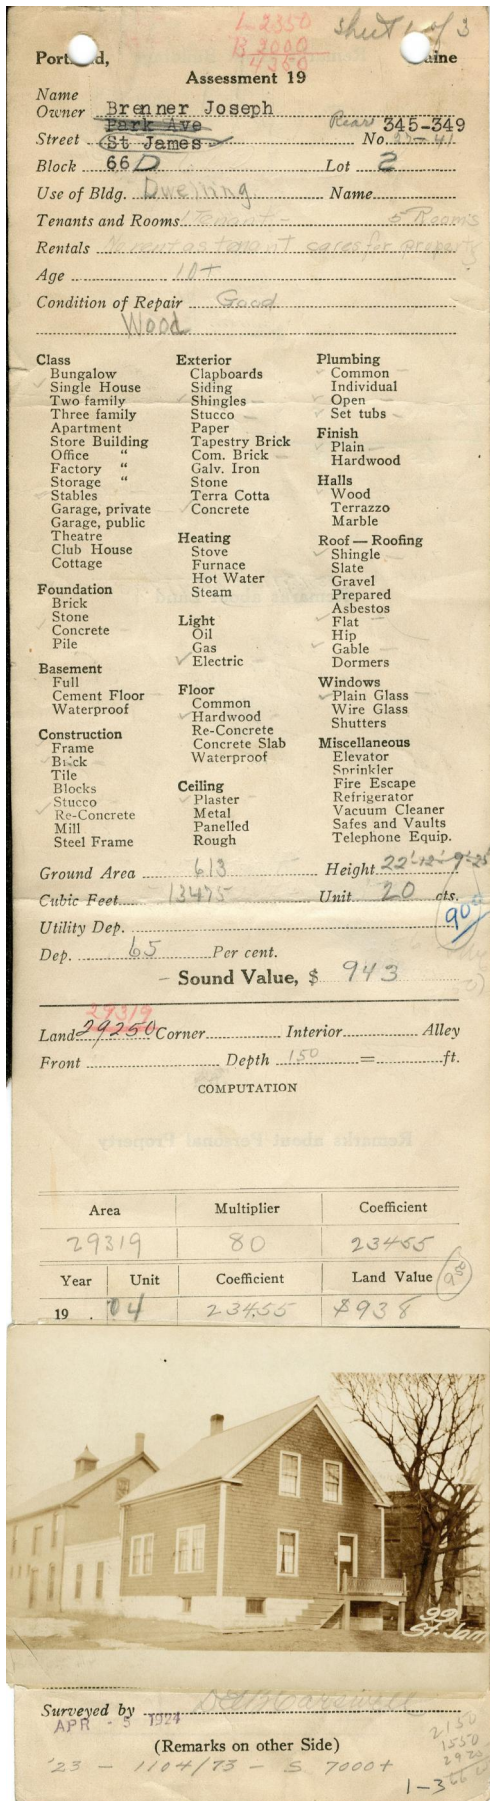 L-2350
B 2000
4350
Sheet 1 of 3
Portland, Maine
Assessment 19
Name
Owner Brenner Joseph
Park Ave
Rear 345-349
Street St James No.
Block 66 D Lot 2
Use of Bldg. Dwelling Name
Tenants and Rooms 1 Tenant - 5 Rooms
Rentals No rent as tenant cares for property
Age 10+
Condition of Repair Good
Wood
Class
Bungalow
Single House
Two family
Three family
Apartment
Store Building
Office "
Factory "
Storage "
Stables
Garage, private
Garage, public
Theatre
Club House
Cottage
Foundation
Brick
Stone
Concrete
Pile
Basement
Full
Cement Floor
Waterproof
Construction
Frame
Brick
Tile
Blocks
Stucco
Re-Concrete
Mill
Steel Frame
Exterior
Clapboards
Siding
Shingles
Stucco
Paper
Tapestry Brick
Com. Brick
Galv. Iron
Stone
Terra Cotta
Concrete
Heating
Stove
Furnace
Hot Water
Steam
Light
Oil
Gas
Electric
Floor
Common
Hardwood
Re-Concrete
Concrete Slab
Waterproof
Ceiling
Plaster
Metal
Panelled
Rough
Plumbing
Common
Individual
Open
Set tubs
Finish
Plain
Hardwood
Halls
Wood
Terrazzo
Marble
Roof — Roofing
Shingle
Slate
Gravel
Prepared
Asbestos
Flat
Hip
Gable
Dormers
Windows
Plain Glass
Wire Glass
Shutters
Miscellaneous
Elevator
Sprinkler
Fire Escape
Refrigerator
Vacuum Cleaner
Safes and Vaults
Telephone Equip.
Ground Area 613 Height 22'-12'-9'-25'
Cubic Feet 13475 Unit 20 cts.
900
Utility Dep.
Dep. 65 Per cent.
Sound Value, $ 943
29319
Land 29250 Corner Interior Alley
Front Depth 150 = ft.
COMPUTATION
Area Multiplier Coefficient
29319 80 23455
Year Unit Coefficient Land Value
19 04 23455 $938
99
St. Jam
Surveyed by
APR - 5 1924
(Remarks on other Side)
'23 - 1104/73 - S 7000+
2150
1550
1-3